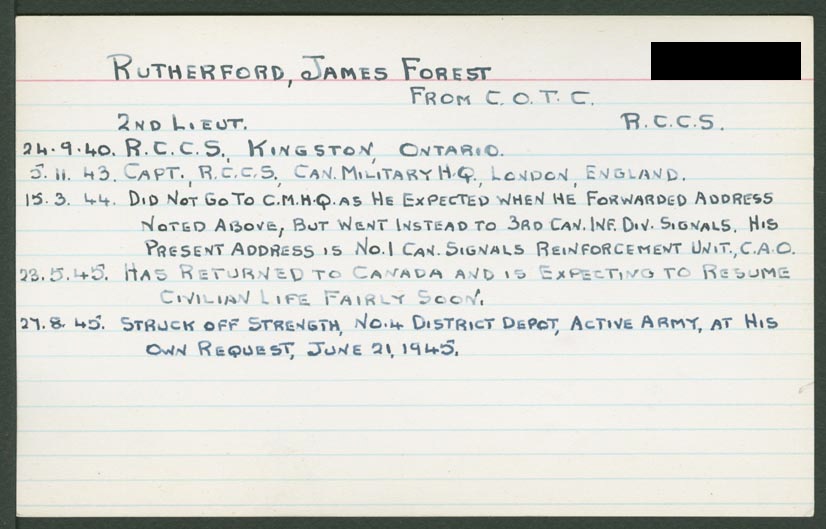 RUTHERFORD, JAMES FOREST
FROM C.O.T.C.
2ND LIEUT. R.C.C.S.
24.9.40. R.C.C.S., KINGSTON, ONTARIO.
5.11.43. CAPT., R.C.C.S., CAN. MILITARY H.Q., LONDON, ENGLAND.
15.3.44. DID NOT GO TO C.M.H.Q. AS HE EXPECTED WHEN HE FORWARDED ADDRESS
NOTED ABOVE, BUT WENT INSTEAD TO 3RD CAN. INF. DIV. SIGNALS. HIS
PRESENT ADDRESS IS NO.1 CAN. SIGNALS REINFORCEMENT UNIT., C.A.O.
23.5.45. HAS RETURNED TO CANADA AND IS EXPECTING TO RESUME
CIVILIAN LIFE FAIRLY SOON.
27.8.45. STRUCK OFF STRENGTH, NO.4 DISTRICT DEPOT, ACTIVE ARMY, AT HIS
OWN REQUEST, JUNE 21, 1945.